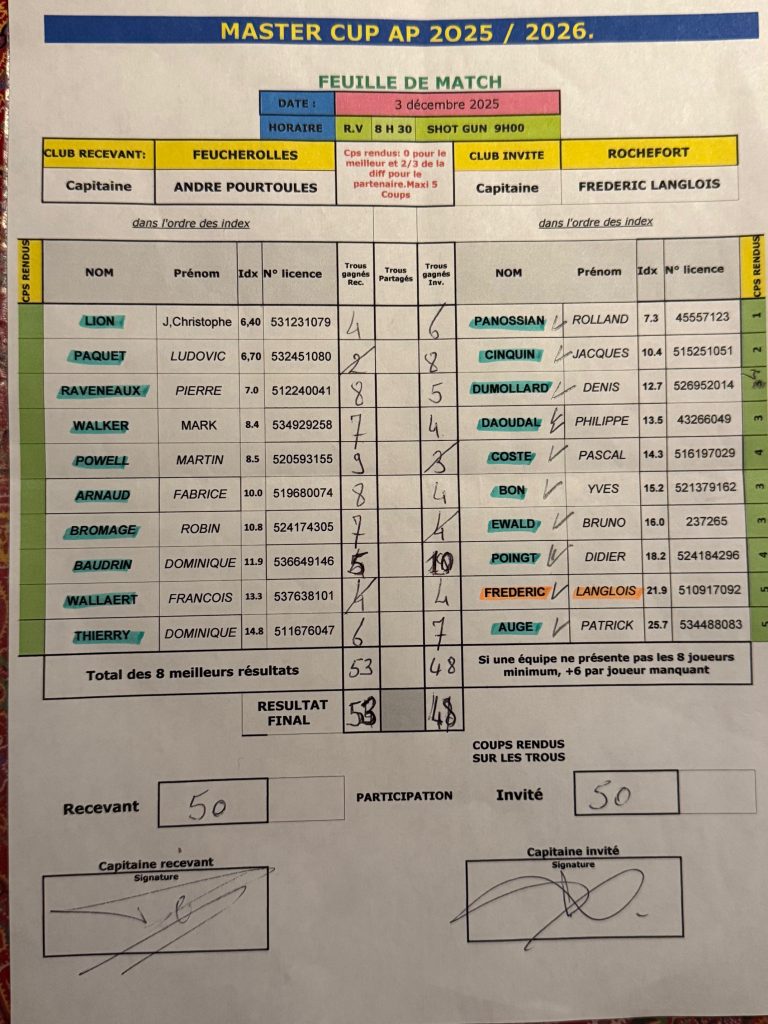 MASTER CUP AP 2025 / 2026.
FEUILLE DE MATCH
DATE : 3 décembre 2025
HORAIRE R.V 8 H 30 SHOT GUN 9H00
CLUB RECEVANT: FEUCHEROLLES
Capitaine ANDRE POURTOULES
Cps rendus: 0 pour le
meilleur et 2/3 de la
diff pour le
partenaire.Maxi 5
Coups
CLUB INVITE ROCHEFORT
Capitaine FREDERIC LANGLOIS
dans l'ordre des index dans l'ordre des index
CPS RENDUS NOM Prénom Idx N° licence Trous gagnés Rec. Trous Partagés Trous gagnés Inv. NOM Prénom Idx N° licence CPS RENDUS
LION J,Christophe 6,40 531231079 4 6 PANOSSIAN ROLLAND 7.3 45557123 1
PAQUET LUDOVIC 6,70 532451080 2 8 CINQUIN JACQUES 10.4 515251051 2
RAVENEAUX PIERRE 7.0 512240041 8 5 DUMOLLARD DENIS 12.7 526952014 4
WALKER MARK 8.4 534929258 7 4 DAOUDAL PHILIPPE 13.5 43266049 3
POWELL MARTIN 8.5 520593155 9 3 COSTE PASCAL 14.3 516197029 4
ARNAUD FABRICE 10.0 519680074 8 4 BON YVES 15.2 521379162 3
BROMAGE ROBIN 10.8 524174305 7 4 EWALD BRUNO 16.0 237265 3
BAUDRIN DOMINIQUE 11.9 536649146 5 10 POINGT DIDIER 18.2 524184296 4
WALLAERT FRANCOIS 13.3 537638101 4 4 FREDERIC LANGLOIS 21.9 510917092 5
THIERRY DOMINIQUE 14.8 511676047 6 7 AUGE PATRICK 25.7 534488083 5
Total des 8 meilleurs résultats 53 48 Si une équipe ne présente pas les 8 joueurs
minimum, +6 par joueur manquant
RESULTAT
FINAL 53 48
COUPS RENDUS
SUR LES TROUS
Recevant 50 PARTICIPATION Invité 50
Capitaine recevant
Signature
Capitaine invité
Signature